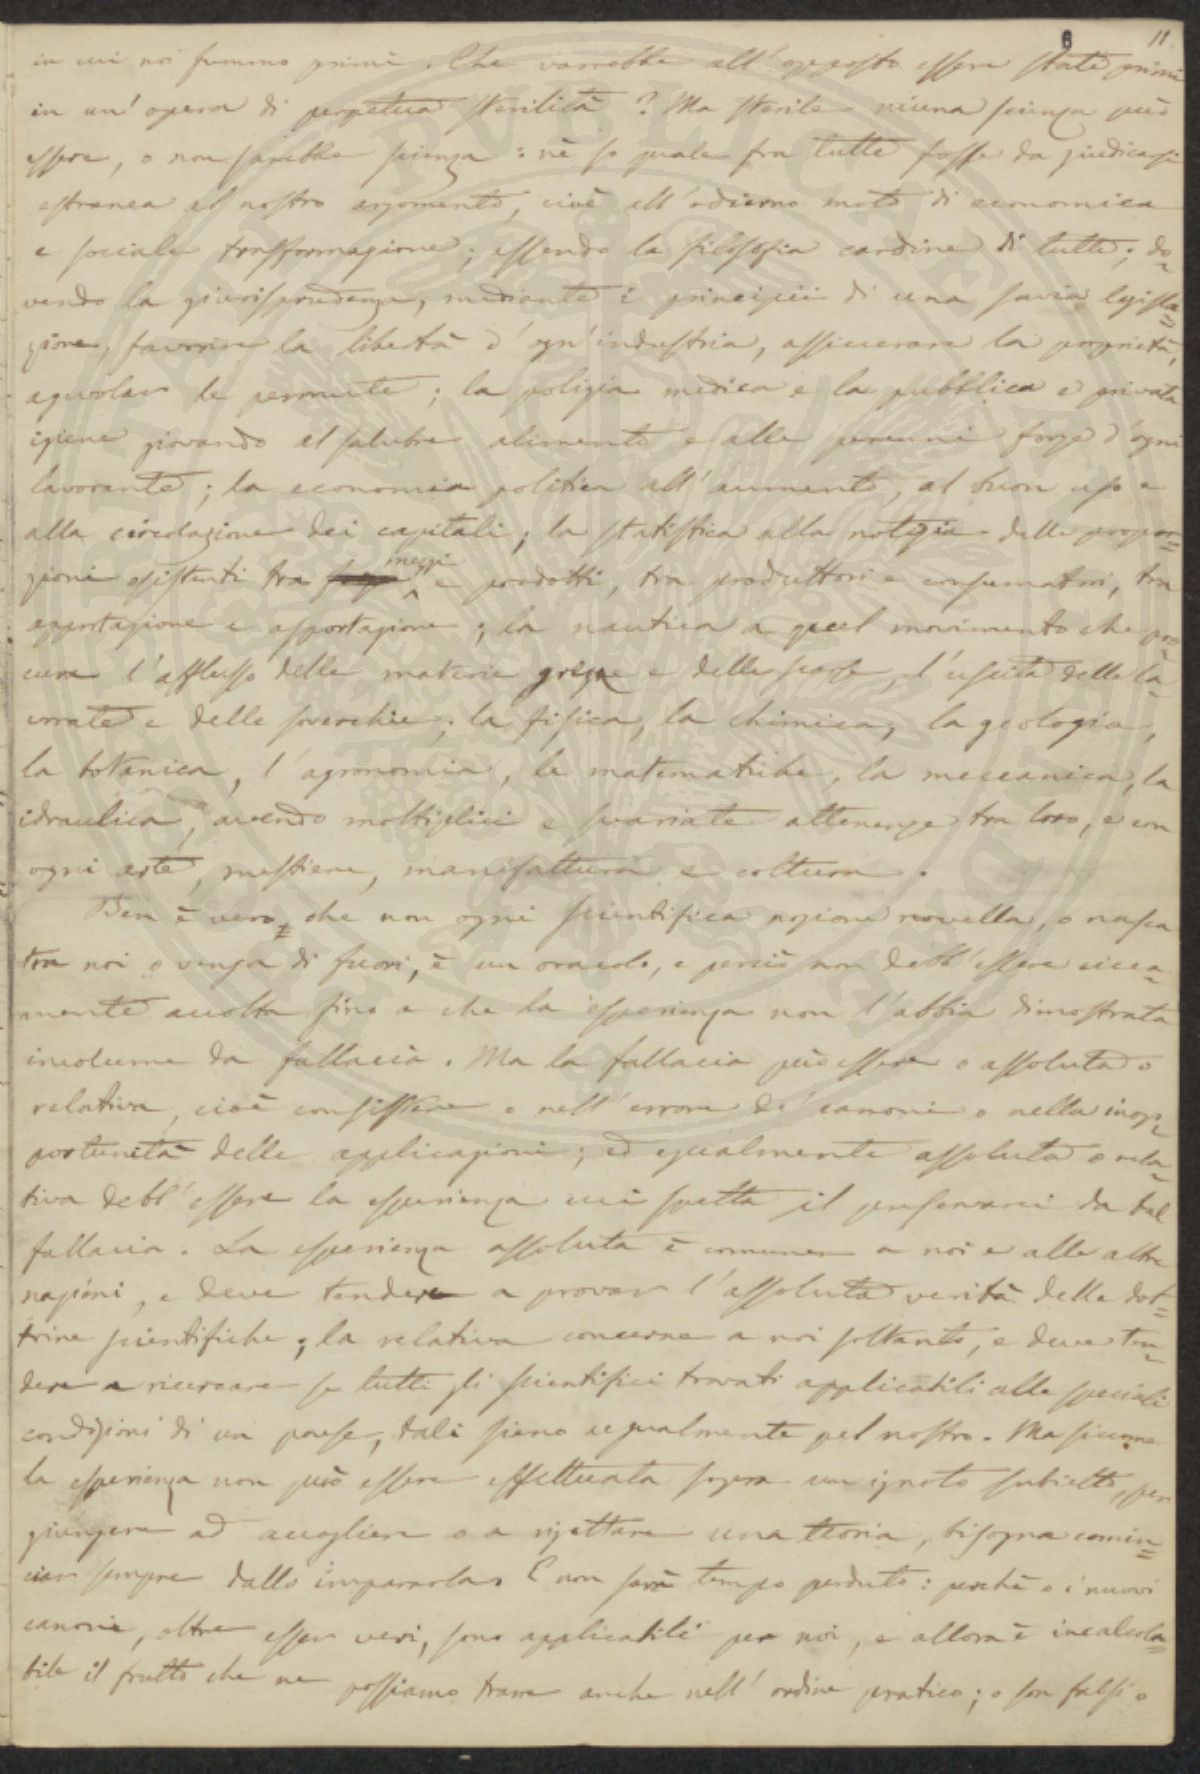 6 11.
in cui noi fummo primi. Che varrebbe all'opposto essere stati primi
in un'opera di perpetua sterilità? Ma sterile niuna scienza può
essere, o non sarebbe scienza: nè so quale fra tutte fosse da giudicarsi
estranea al nostro argomento, cioè all'odierno moto di economica
e sociale trasformazione; essendo la filosofia cardine di tutte; do=
vendo la giurisprudenza, mediante i principii di una savia legisla=
zione, favorire la libertà d'ogn'industria, assicurare la proprietà,
agevolar le permute; la polizia medica e la pubblica e privata
igiene giovando al salubre alimento e alle perenni forze d'ogni
lavorante; la economia politica all'aumento, al buon uso e
alla circolazione dei capitali; la statistica alla notizia delle propor=
zioni esistenti tra mezzi e prodotti, tra produttori e consumatori, tra
apportazione e asportazione; la nautica a quel movimento che pro=
cura l'afflusso delle materie gregge e delle scarse, l'uscita delle la=
vorate e delle soverchie; la fisica, la chimica, la geologia,
la botanica, l'agronomia, le matematiche, la meccanica, la
idraulica, avendo moltiplici e svariate attenenze tra loro, e con
ogni arte, mestiere, manifattura e coltura.
Ben è vero, che non ogni scientifica nozione novella, o nasca
tra noi o venga di fuori, è un oracolo, e perciò non debb'essere cieca=
mente accolta fino a che la esperienza non l'abbia dimostrata
incolume da fallacia. Ma la fallacia può essere o assoluta o
relativa, cioè consistere o nell'errore de' canoni o nella inop=
portunità delle applicazioni; ed egualmente assoluta o rela=
tiva debb'essere la esperienza cui spetta il preservarci da tal
fallacia. La esperienza assoluta è comune a noi e alle altre
nazioni, e deve tendere a provar l'assoluta verità delle dot=
trine scientifiche; la relativa concerne a noi soltanto, e deve ten=
dere a ricercare se tutti gli scientifici trovati applicabili alle speciali
condizioni di un paese, tali sieno ugualmente pel nostro. Ma siccome
la esperienza non può essere effettuata sopra un ignoto subietto, per
giungere ad accogliere o a rigettare una teoria, bisogna comin=
ciar sempre dallo impararla. E non sarà tempo perduto: perchè o i nuovi
canoni, oltre esser veri, sono applicabili per noi, e allora è incalcola=
bile il frutto che ne possiamo trarre anche nell'ordine pratico; o son falsi o